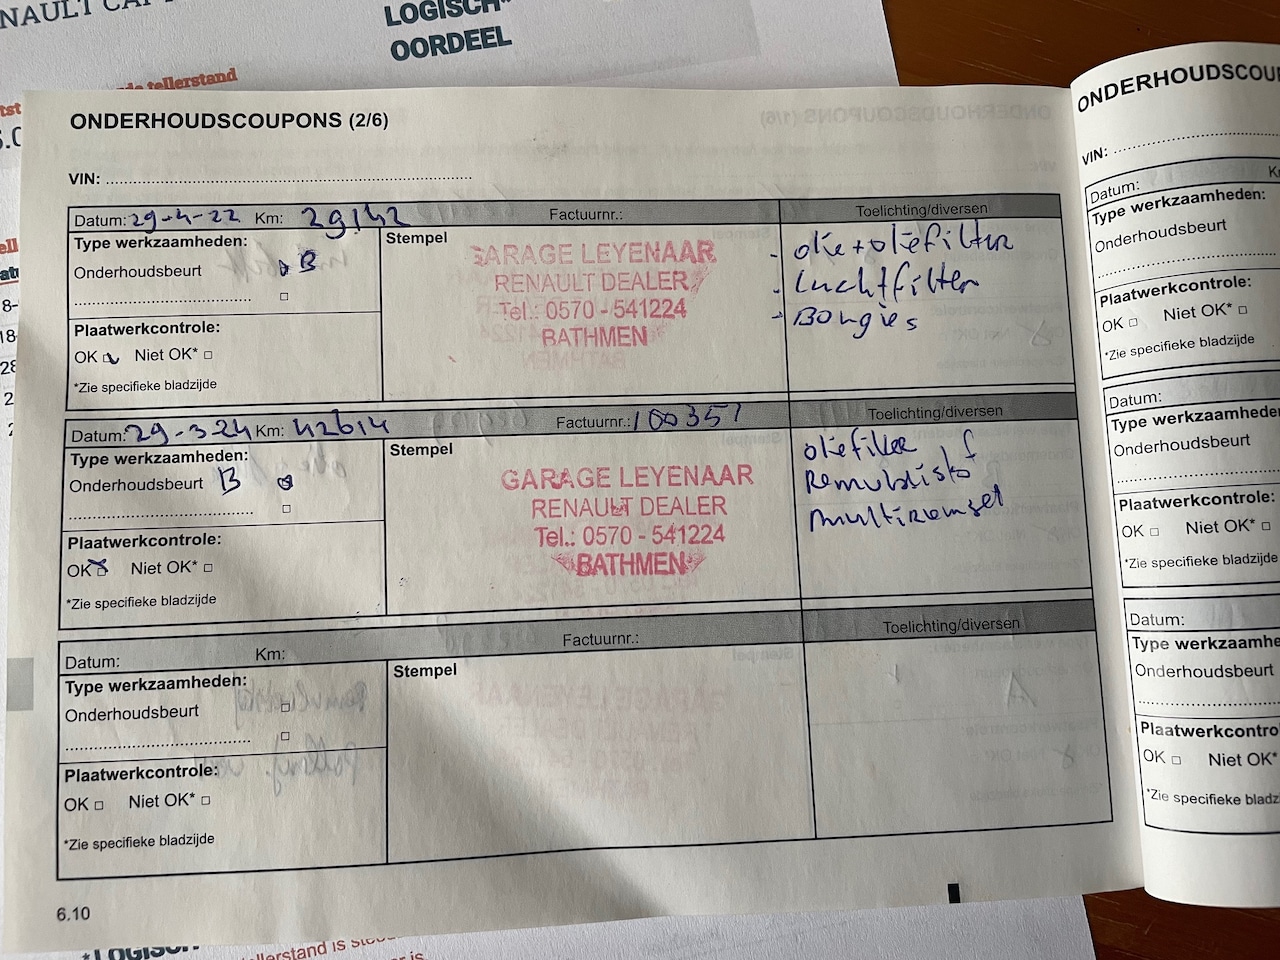 NAULT CAPT
LOGISCH*
OORDEEL
tellerstand
ONDERHOUDSCOUPONS (2/6)
VIN:
Datum: 29-4-22 Km: 29142 Factuurnr.: Toelichting/diversen
Type werkzaamheden:
Onderhoudsbeurt B
Plaatwerkcontrole:
OK Niet OK*
*Zie specifieke bladzijde
Stempel
GARAGE LEYENAAR
RENAULT DEALER
Tel.: 0570 - 541224
BATHMEN
- olie + oliefilter
- Luchtfilter
- Bougies
Datum: 29-3-24 Km: 42614 Factuurnr.: 100357 Toelichting/diversen
Type werkzaamheden:
Onderhoudsbeurt B
Plaatwerkcontrole:
OK Niet OK*
*Zie specifieke bladzijde
Stempel
GARAGE LEYENAAR
RENAULT DEALER
Tel.: 0570 - 541224
BATHMEN
oliefilter
Remvloeistof
multiriemset
Datum: Km: Factuurnr.: Toelichting/diversen
Type werkzaamheden:
Onderhoudsbeurt
Plaatwerkcontrole:
OK Niet OK*
*Zie specifieke bladzijde
Stempel
6.10
ONDERHOUDSCOU
VIN:
Datum: K
Type werkzaamheden:
Onderhoudsbeurt
Plaatwerkcontrole:
OK Niet OK*
*Zie specifieke bladzijde
Datum:
Type werkzaamheden
Onderhoudsbeurt
Plaatwerkcontrole:
OK Niet OK*
*Zie specifieke bladzijde
Datum:
Type werkzaamhe
Onderhoudsbeurt
Plaatwerkcontro
OK Niet OK*
*Zie specifieke bladz
*LOGISCH
llerstand is